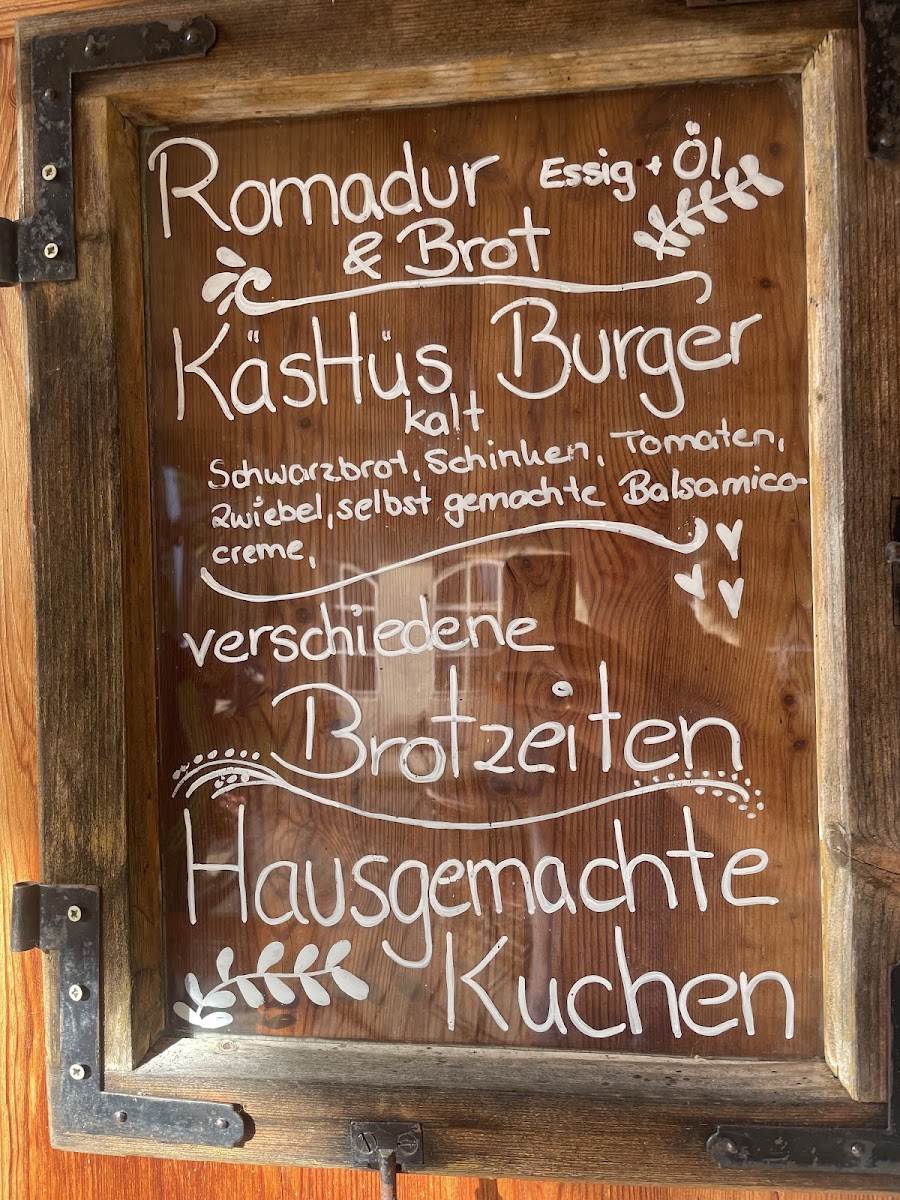 Romadur Essig + Öl
& Brot
KäsHüs Burger
kalt
Schwarzbrot, Schinken, Tomaten,
Zwiebel, selbst gemachte Balsamico-
creme,
verschiedene
Brotzeiten
Hausgemachte
Kuchen